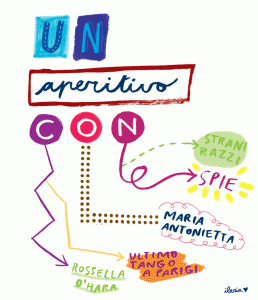 UN
aperitivo
CON
STRANI
RAZZI
SPIE
MARIA
ANTONIETTA
ULTIMO
TANGO
A PARIGI
ROSSELLA
O'HARA
ilaria